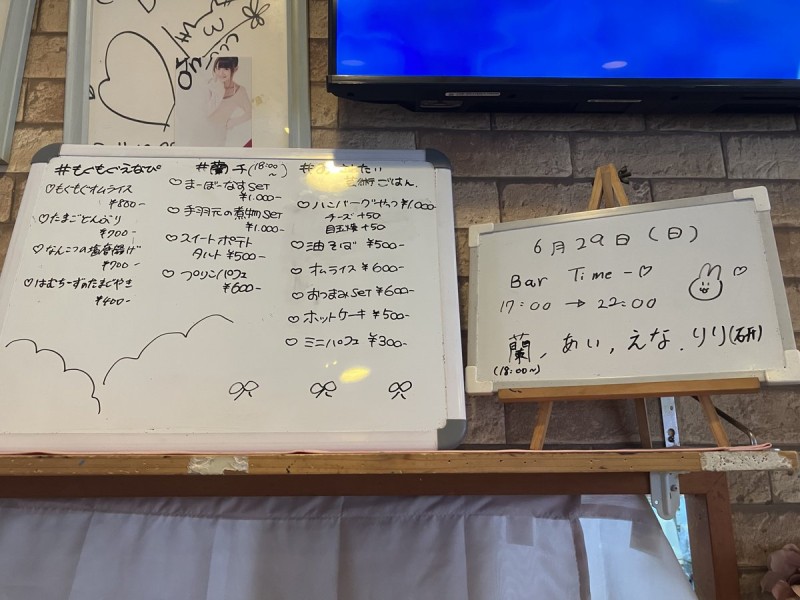 #もぐもぐえなぴ
♡もぐもぐオムライス
¥800-
♡たまごとんぶり
¥700-
♡なんこつの塩唐揚げ
¥700-
♡はむちーずのたまごやき
¥400-
#蘭子(18:00~)
♡まーぼーなすSET
¥1.000-
♡手羽元の煮物SET
¥1.000-
♡スイートポテト
タルト ¥500-
♡つりこパフェ
¥600-
ごはん.
♡ハンバーグやつ ¥1.000
チーズ +50
目玉焼 +50
♡油そば ¥500-
♡オムライス ¥600-
♡おつまみSET ¥600-
♡ホットケーキ ¥500-
♡ミニパフェ ¥300-
6月29日(日)
Bar Time-♡
17:00 → 22:00
蘭, あい, えな, りり(研)
(18:00~)